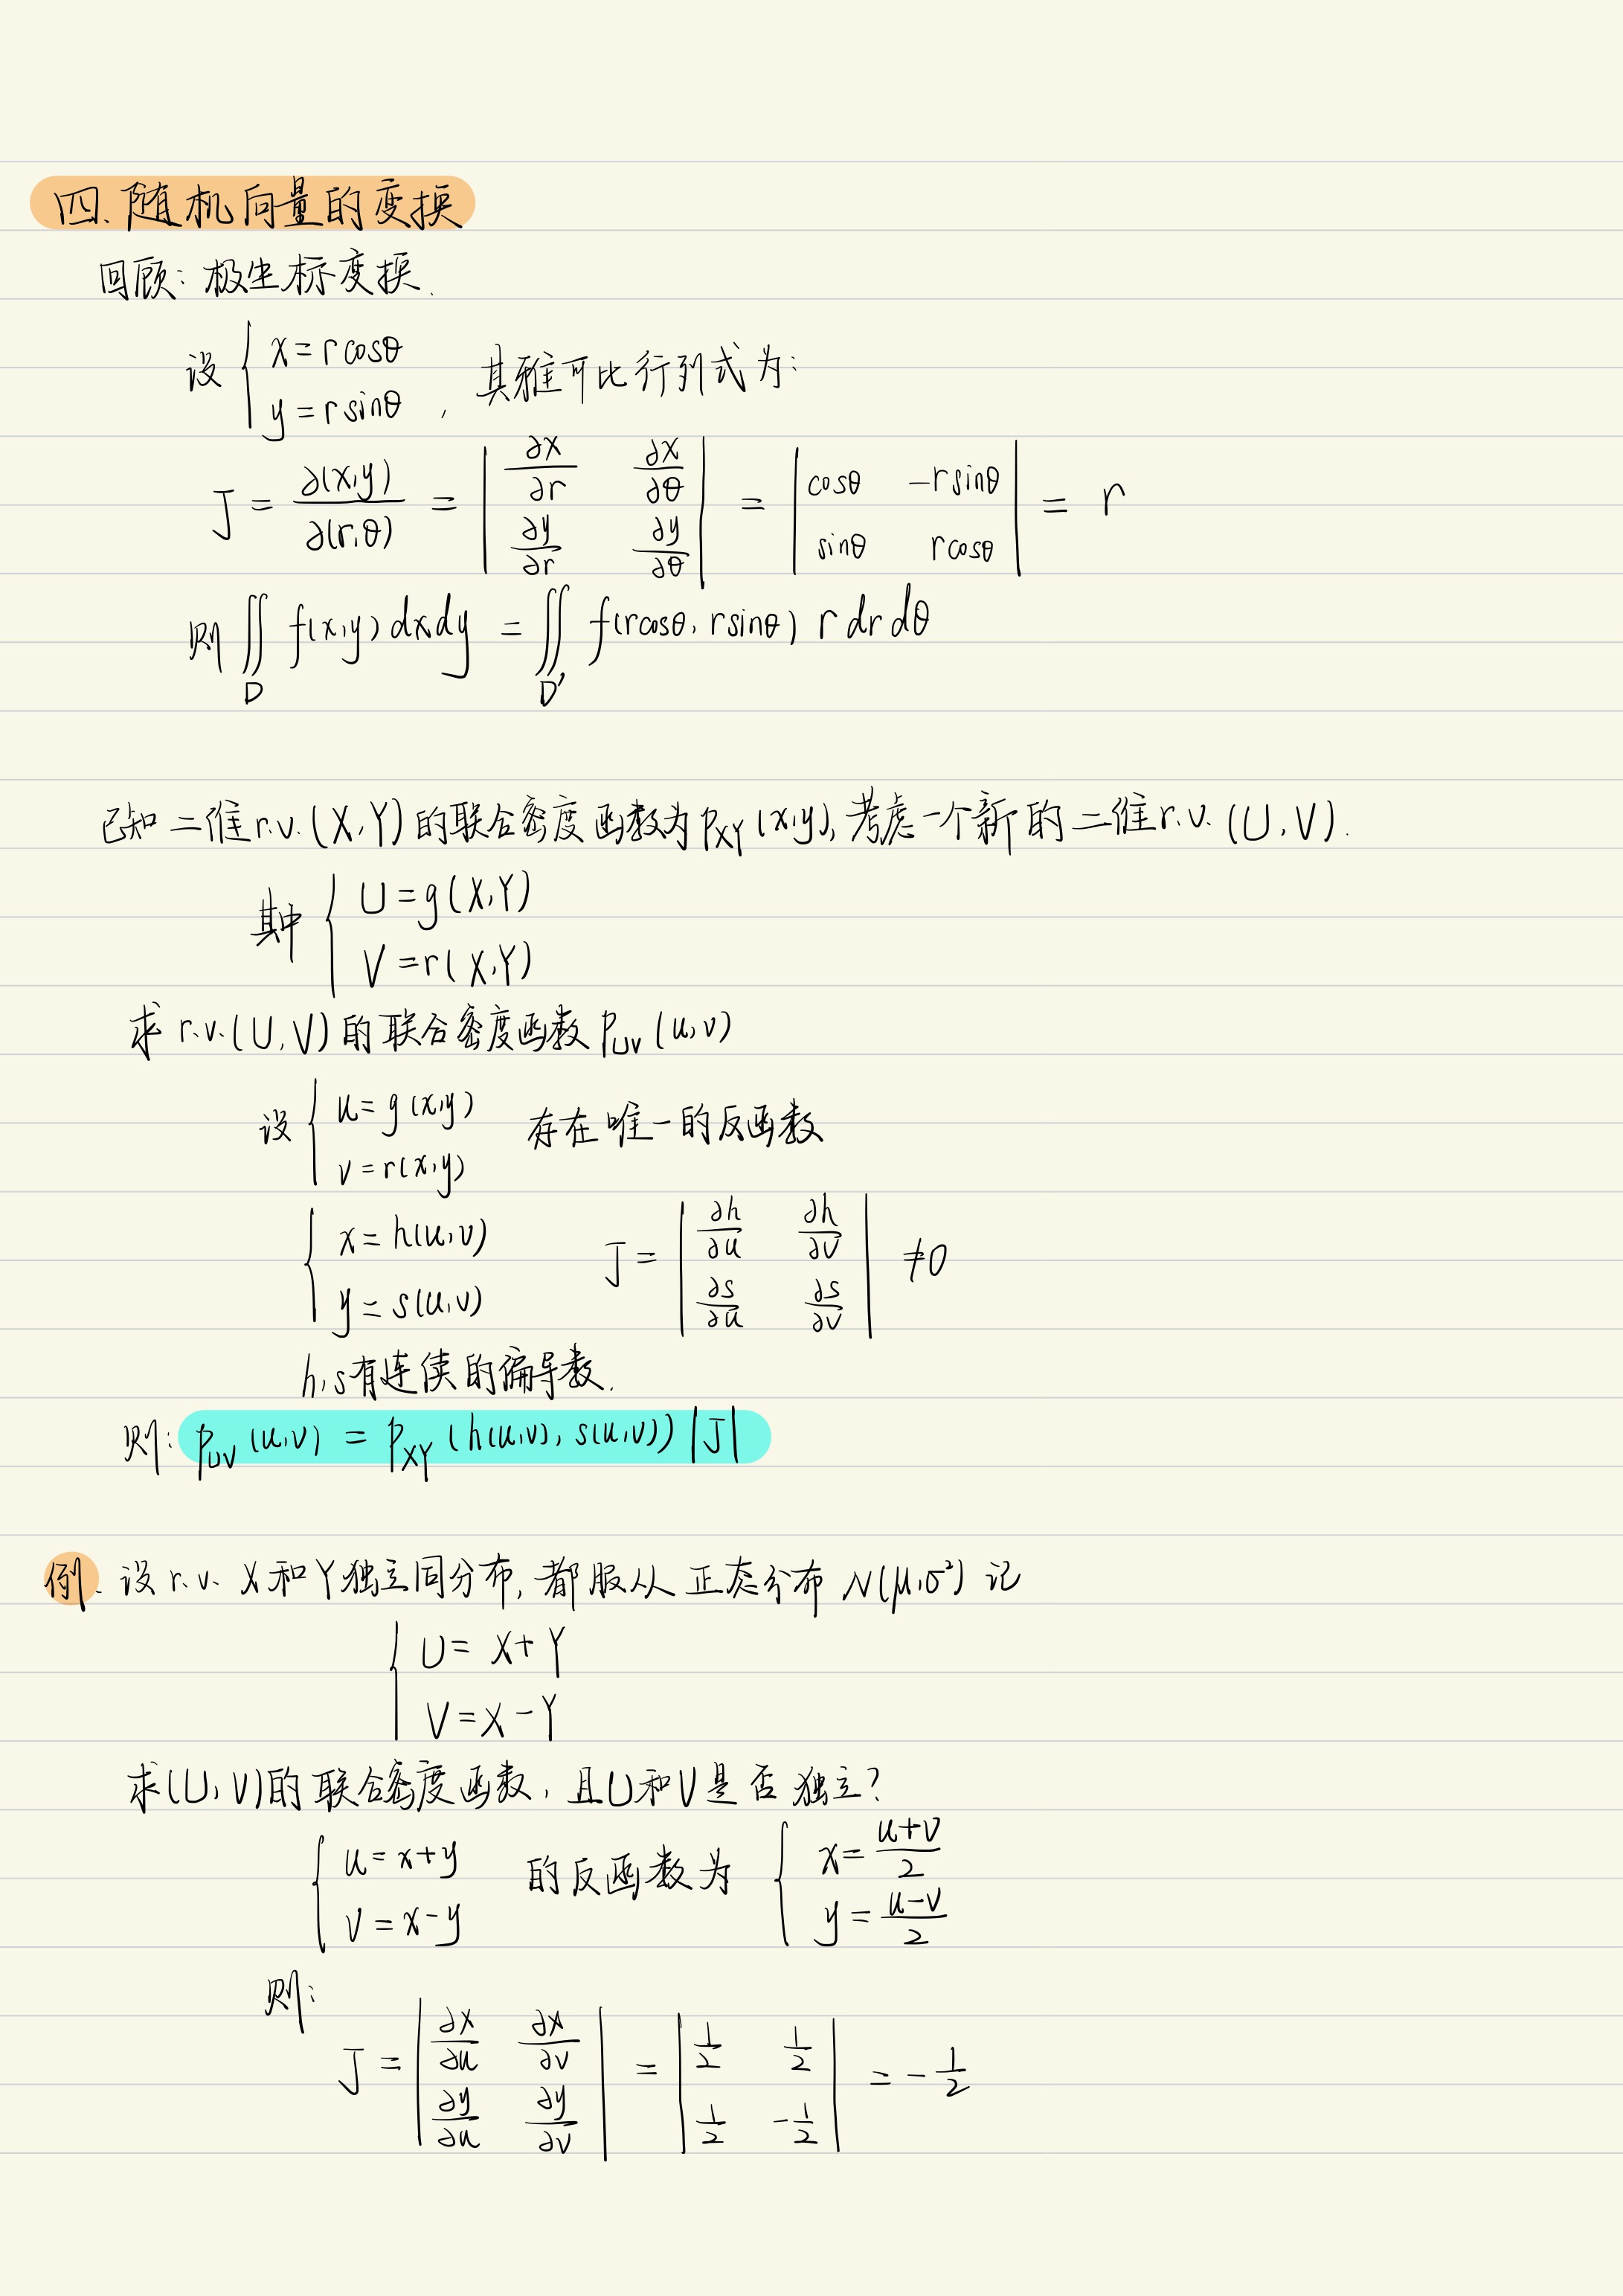 四.随机向量的变换
回顾:极坐标变换.
设 { x=rcosθ
y=rsinθ , 其雅可比行列式为:
J = ∂(x,y)/∂(r,θ) = | ∂x/∂r ∂x/∂θ ; ∂y/∂r ∂y/∂θ | = | cosθ -rsinθ ; sinθ rcosθ | = r
则 ∬_D f(x,y)dxdy = ∬_D' f(rcosθ, rsinθ) r dr dθ
已知二维r.v.(X,Y)的联合密度函数为p_XY(x,y),考虑一个新的二维r.v.(U,V).
其中 { U=g(X,Y)
V=r(X,Y)
求 r.v.(U,V)的联合密度函数 p_UV(u,v)
设 { u=g(x,y) 存在唯一的反函数
v=r(x,y)
{ x=h(u,v)
y=s(u,v) J= | ∂h/∂u ∂h/∂v ; ∂s/∂u ∂s/∂v | ≠0
h,s有连续的偏导数.
则: p_UV(u,v) = p_XY(h(u,v), s(u,v))|J|
例. 设 r.v. X和Y独立同分布,都服从正态分布 N(μ,σ²) 记
{ U= X+Y
V=X-Y
求(U,V)的联合密度函数,且U和V是否独立?
{ u=x+y
v=x-y 的反函数为 { x=(u+v)/2
y=(u-v)/2
则:
J= | ∂x/∂u ∂x/∂v ; ∂y/∂u ∂y/∂v | = | 1/2 1/2 ; 1/2 -1/2 | = -1/2